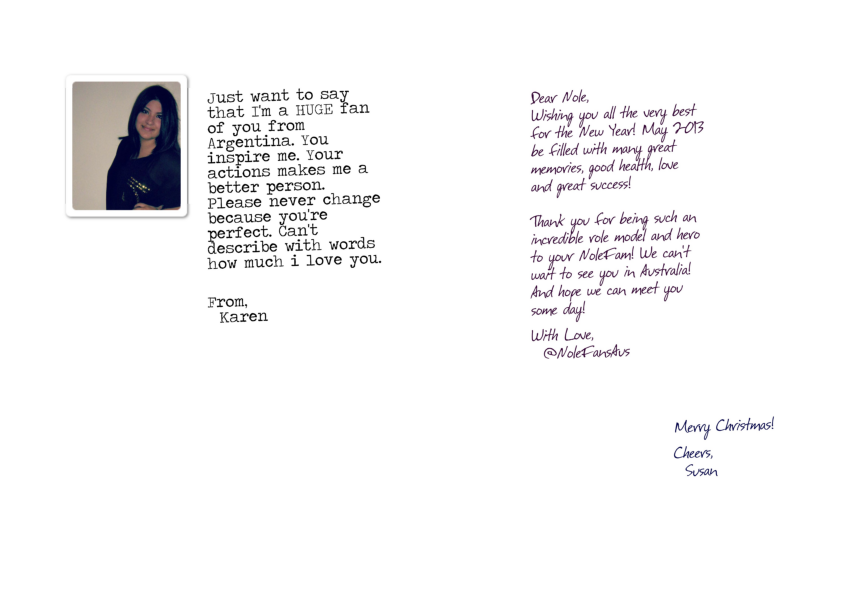 Just want to say
that I'm a HUGE fan
of you from
Argentina. You
inspire me. Your
actions makes me a
better person.
Please never change
because you're
perfect. Can't
describe with words
how much i love you.
From,
Karen
Dear Nole,
Wishing you all the very best
for the New Year! May 2013
be filled with many great
memories, good health, love
and great success!
Thank you for being such an
incredible role model and hero
to your NoleFam! We can't
wait to see you in Australia!
And hope we can meet you
some day!
With Love,
@NoleFansAus
Merry Christmas!
Cheers,
Susan